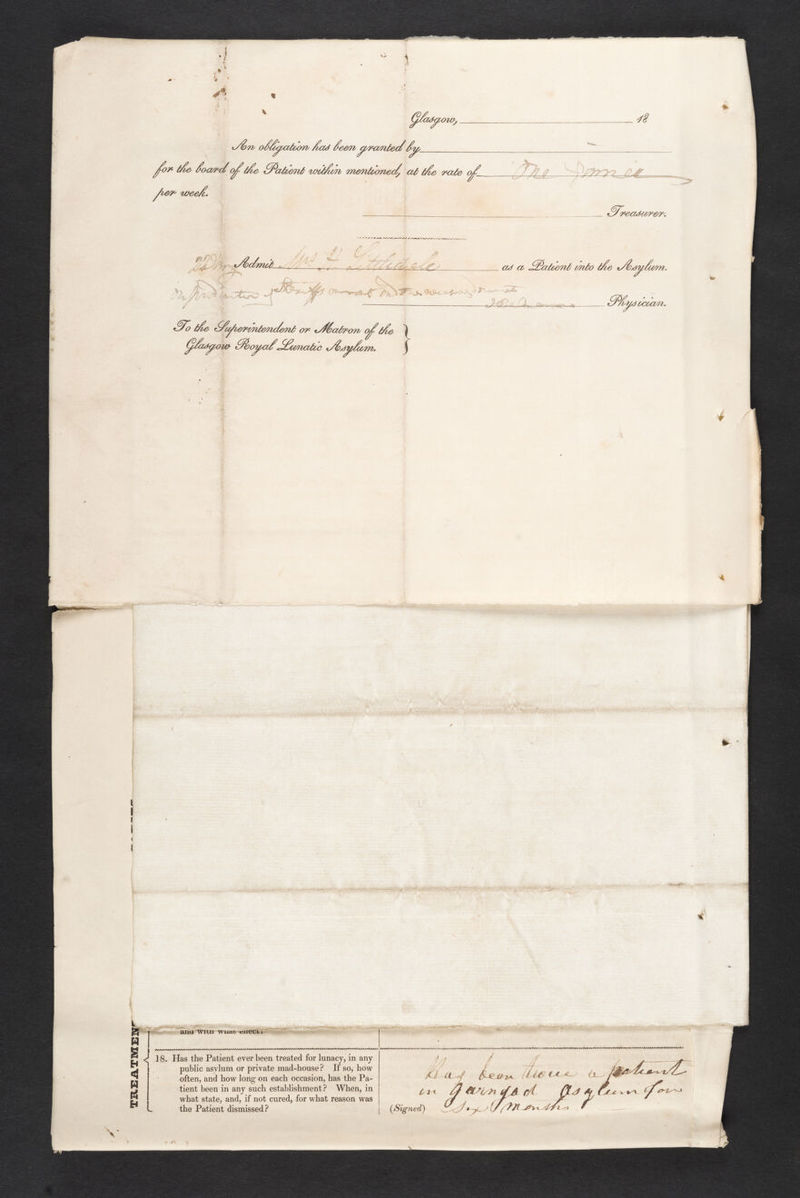 Glasgow, 18
An obligation has been granted by
for the board of the Patient within mentioned, at the rate of One
per week.
Treasurer.
Admit Mrs as a Patient into the Asylum.
Physician.
To the Superintendent or Matron of the
Glasgow Royal Lunatic Asylum.
and with what effect?
TREATMEN
18. Has the Patient ever been treated for lunacy, in any
public asylum or private mad-house? If so, how
often, and how long on each occasion, has the Pa-
tient been in any such establishment? When, in
what state, and, if not cured, for what reason was
the Patient dismissed?
Has been a patient
in asylum for
(Signed) Six Months